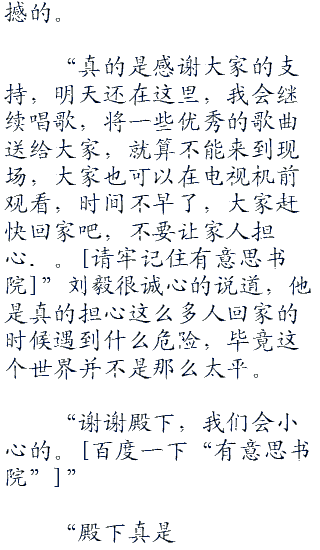 撼的。
“真的是感谢大家的支
持，明天还在这里，我会继
续唱歌，将一些优秀的歌曲
送给大家，就算不能来到现
场，大家也可以在电视机前
观看，时间不早了，大家赶
快回家吧，不要让家人担
心．。[请牢记住有意思书
院]”刘毅很诚心的说道，他
是真的担心这么多人回家的
时候遇到什么危险，毕竟这
个世界并不是那么太平。
“谢谢殿下，我们会小
心的。[百度一下“有意思书
院”]”
“殿下真是